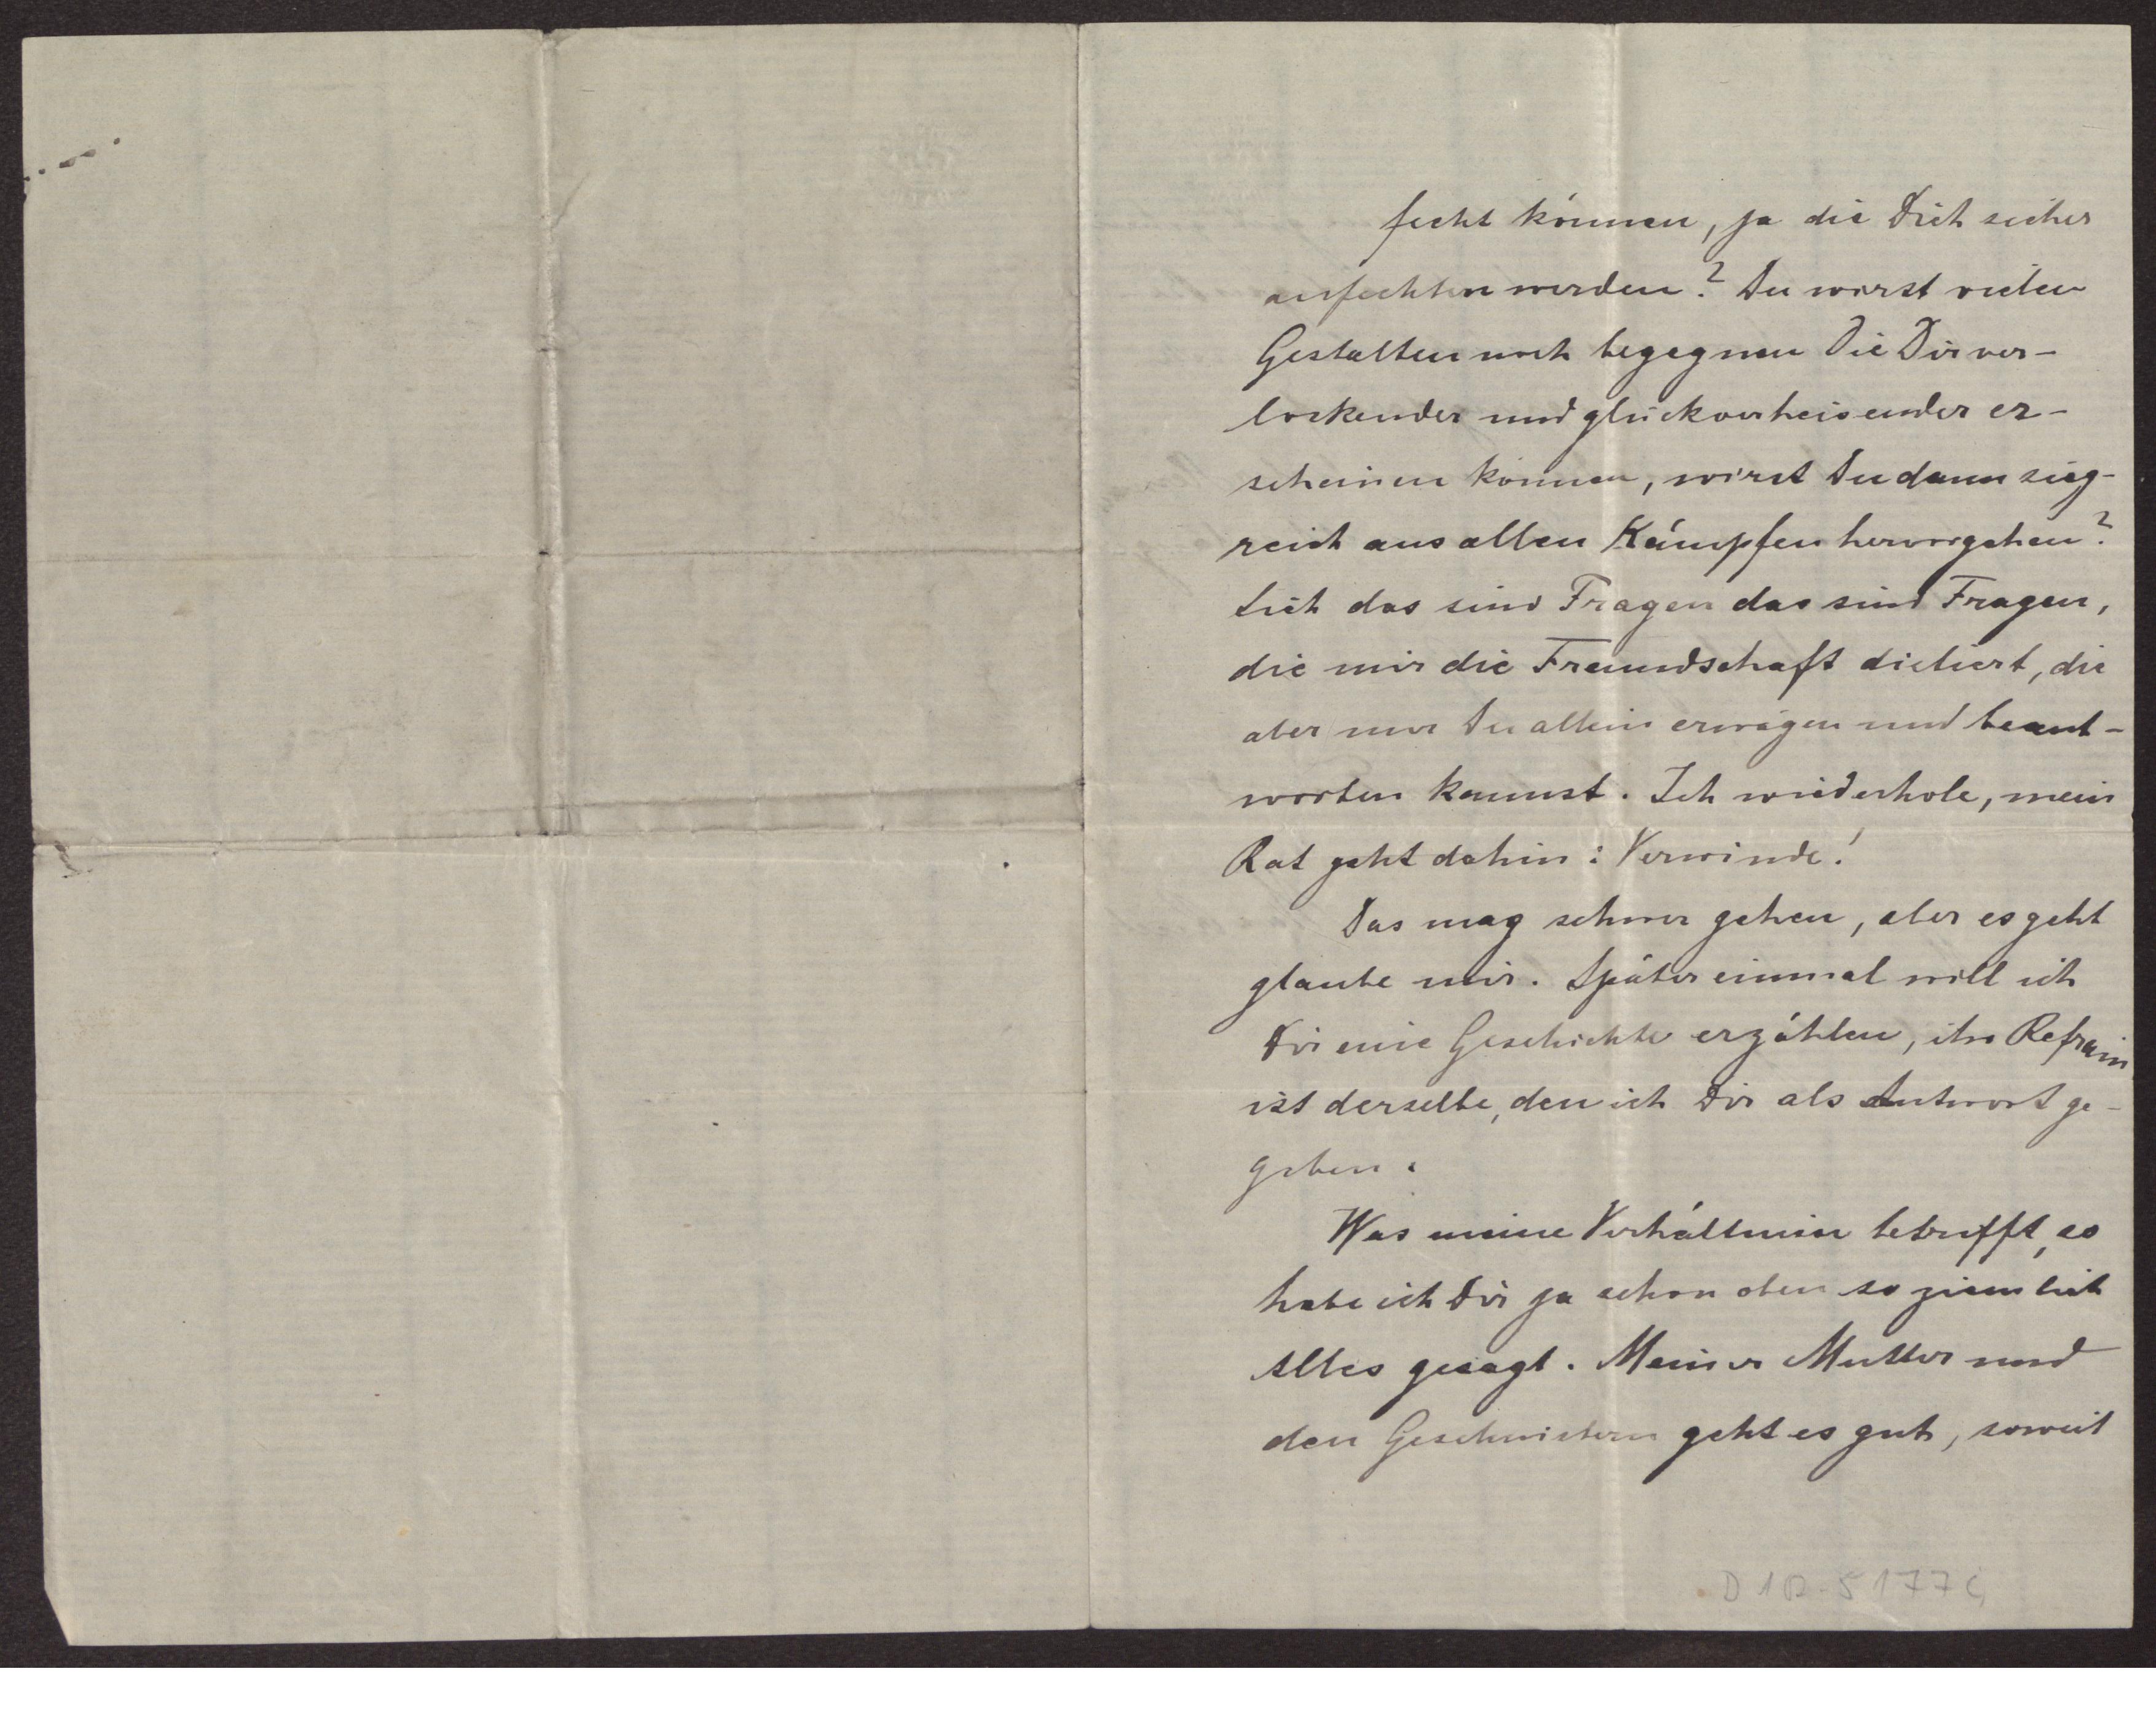 fecht können, ja die Dich sicher
anfechten werden? Du wirst vielen
Gestalten noch begegnen die Dir ver-
lockender und glückverheisender er-
scheinen können, wirst Du dann sieg-
reich aus allen Kämpfen hervorgehen?
Sieh das sind Fragen das sind Fragen,
die mir die Freundschaft dictiert, die
aber nur Du allein erwägen und beant-
worten kannst. Ich wiederhole, mein
Rat geht dahin: Verwinde!
Das mag schwer gehen, aber es geht
glaube mir. Später einmal will ich
Dir eine Geschichte erzählen, ihr Refrain
ist derselbe, den ich Dir als Antwort ge-
geben.
Was meine Verhältnisse betrifft, so
habe ich Dir ja schon oben so ziemlich
Alles gesagt. Meiner Mutter und
den Geschwistern geht es gut, soweit